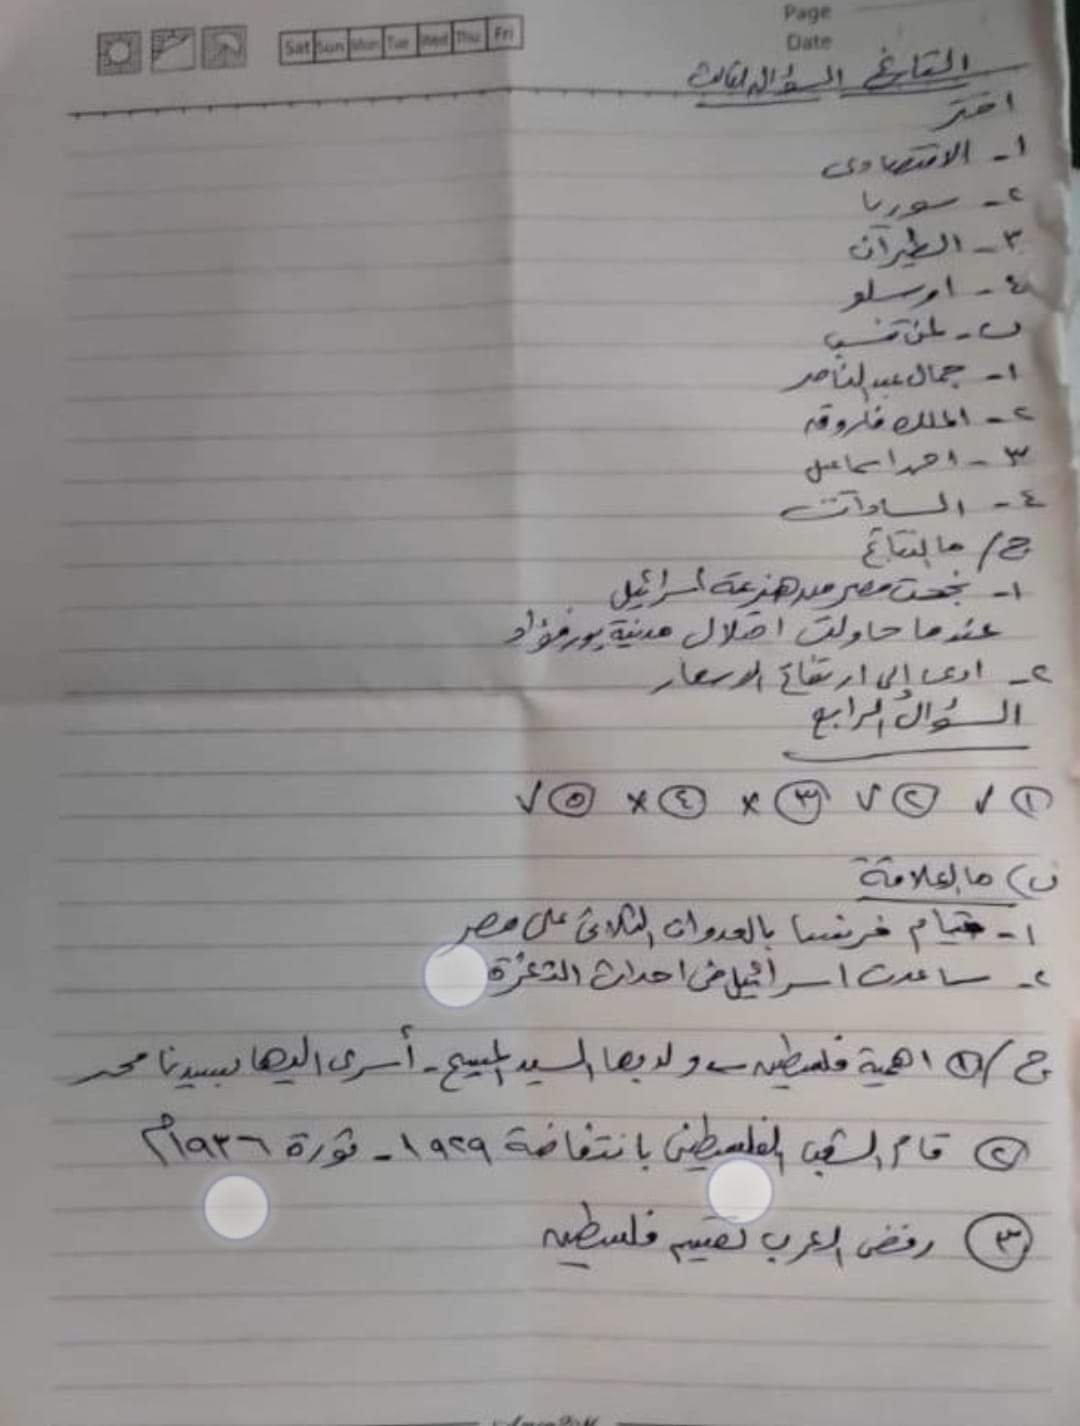 Page
Date
Sat Sun Mon Tue Wed Thu Fri
التاريخ السؤال الثالث
اختر
١- الاقتصادى
٢- سوريا
٣- الطيران
٤- اوسلو
ب- لمن تنسب
١- جمال عبد الناصر
٢- الملك فاروق
٣- احمد اسماعيل
٤- السادات
ج/ ما النتائج
١- نجحت مصر من هزيمة اسرائيل
عندما حاولت احتلال مدينة بورفؤاد
٢- ادى إلى ارتفاع الاسعار
السؤال الرابع
١ ✓ ٢ ✓ ٣ × ٤ × ٥ ✓
ب) ما العلاقة
١- قيام فرنسا بالعدوان الثلاثى على مصر
٢- ساعدت اسرائيل فى احداث الثغرة
ج/ ١ اهمية فلسطين ولد بها السيد المسيح - أسرى اليها بسيدنا محمد
٢ قام الشعب الفلسطينى بانتفاضة ١٩٢٩ - ثورة ١٩٣٦م
٣ رفض العرب تقسيم فلسطين